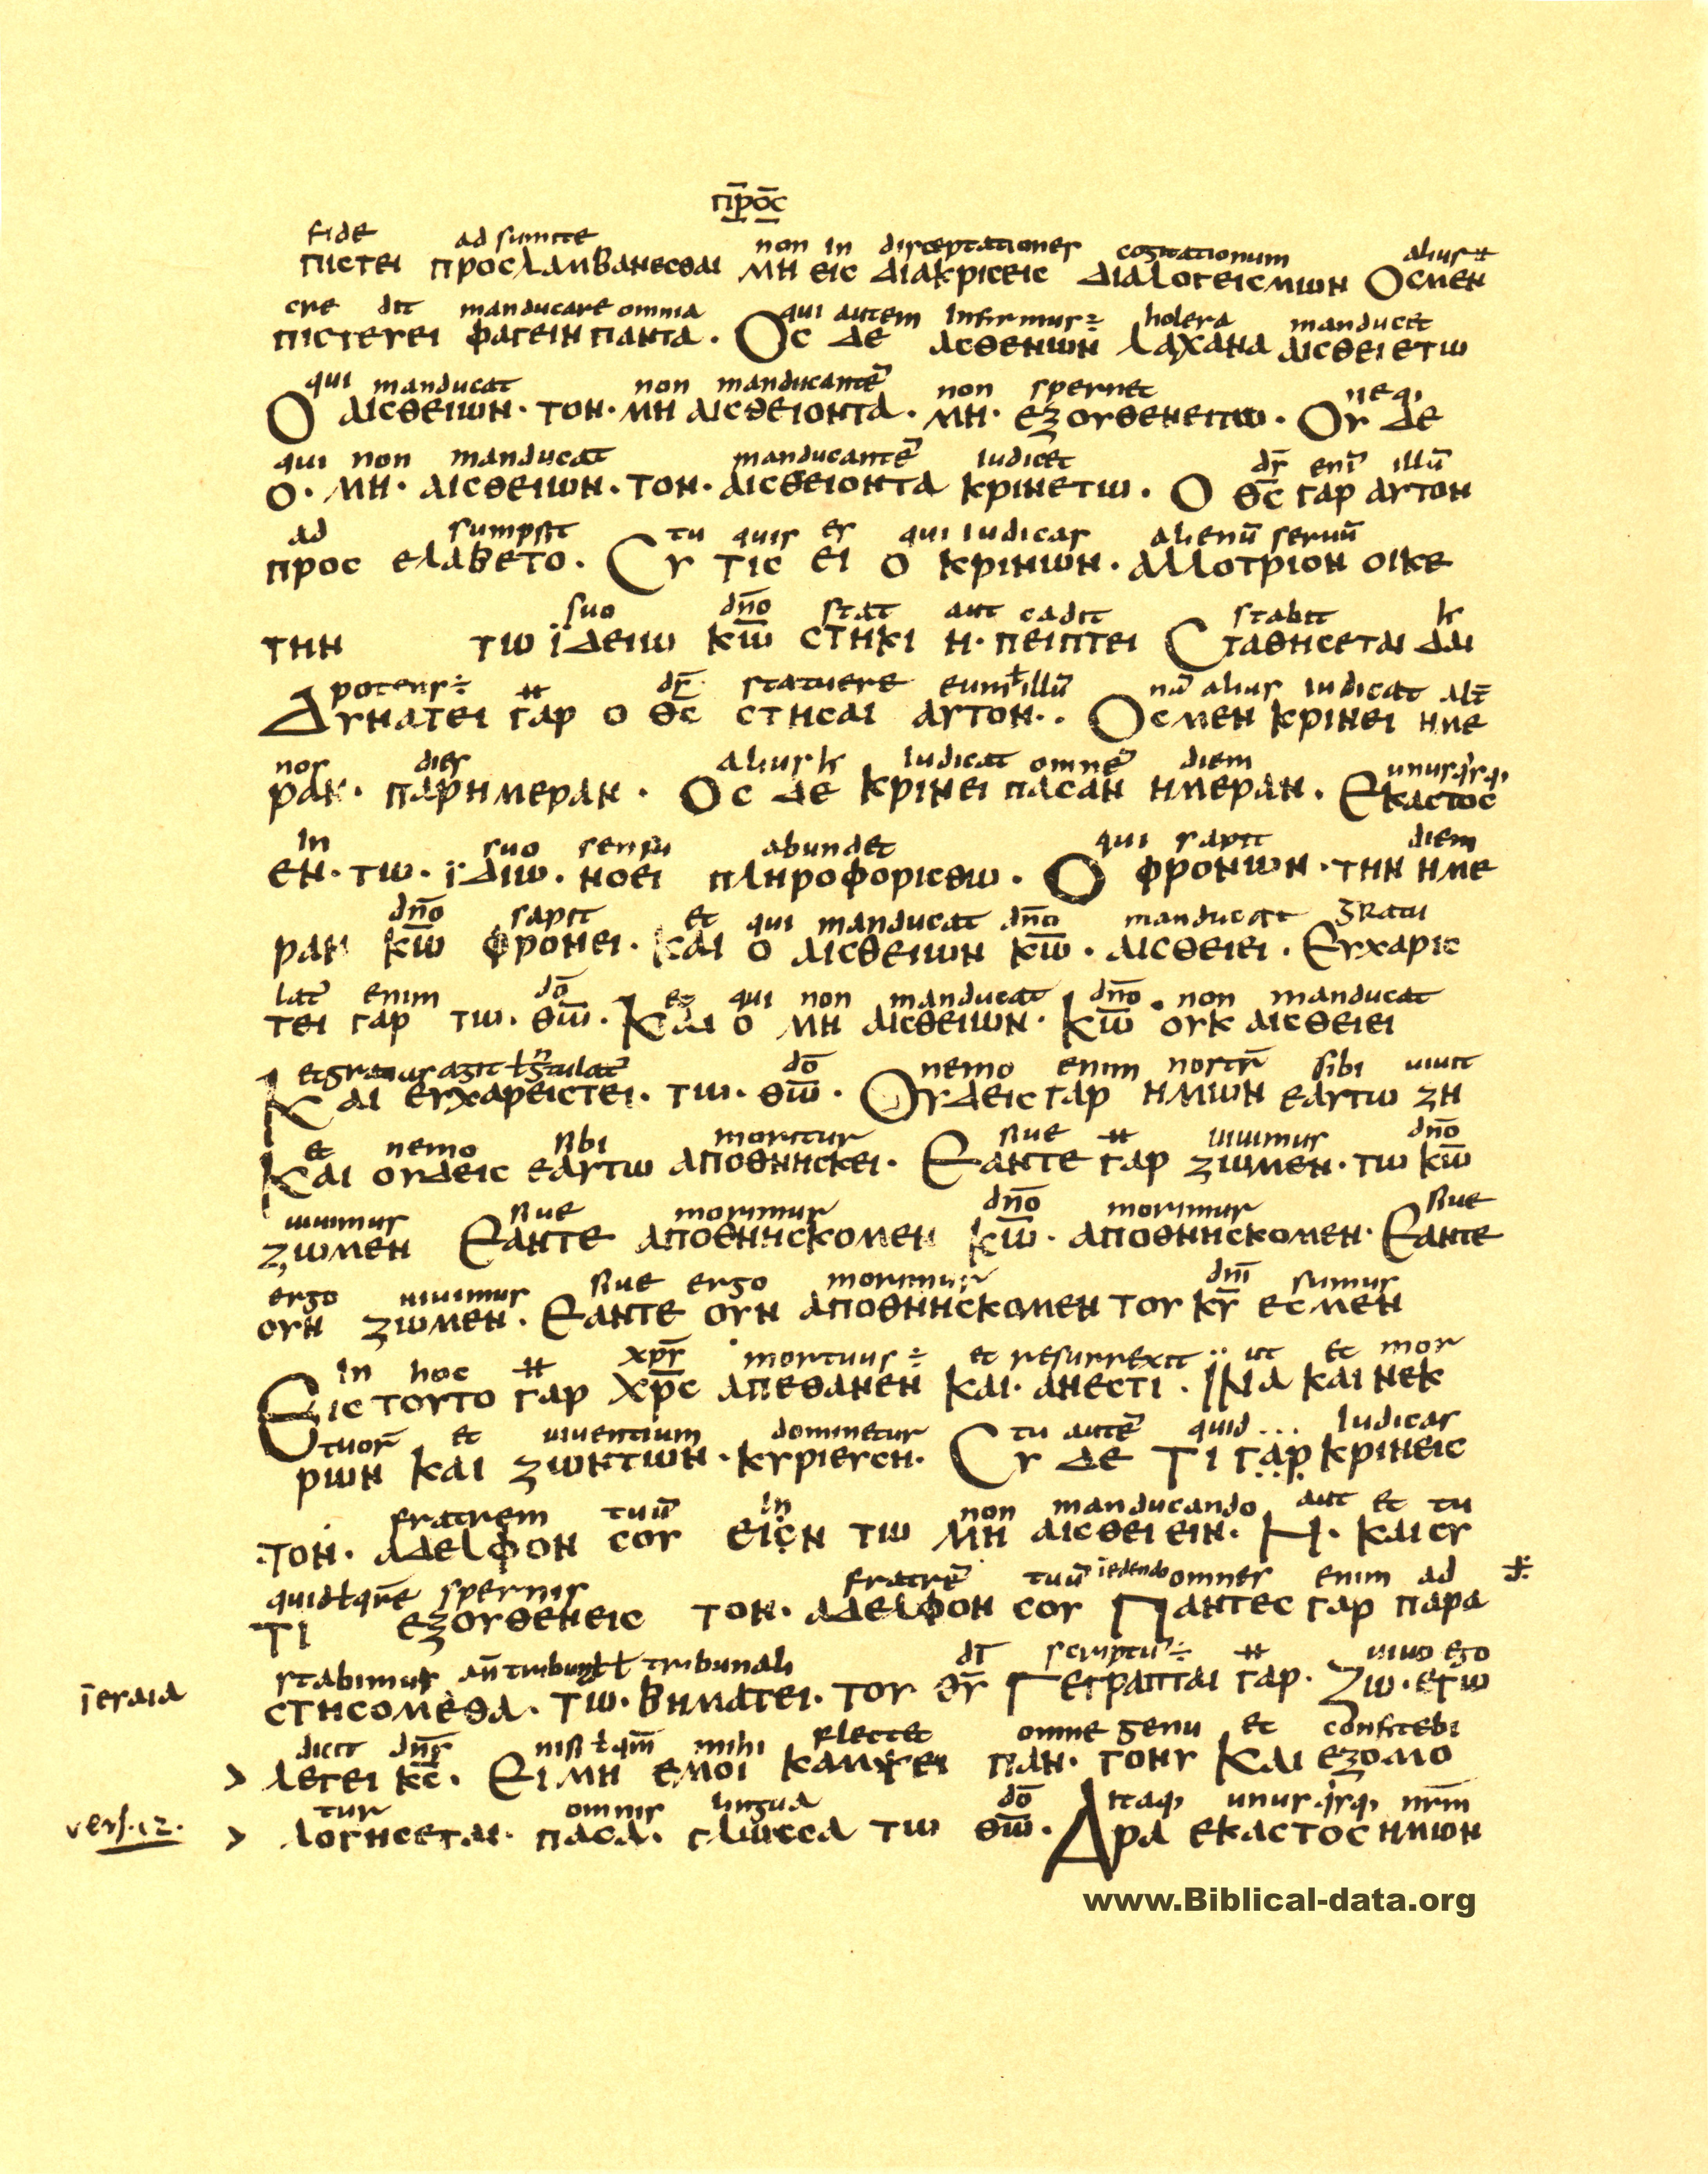 π̅ρ̅ο̅ς̅
fide adsumite non in disceptationes cogitationum alius
πιστει προσλαμβανεσθαι μη εις διακρισεις διαλογεισμων Οσμεν
cre dit manducare omnia qui autem infirmus÷ holera manducet
πιστευει φαγειν παντα · Ος δε ασθενων λαχανα αισθειετω
qui manducat non manducantē non spernet neq,
Ο αισθειων · τον · μη αισθειοντα · μη · εξουθενειτω · Ου δε
qui non manducat manducantē iudicet ds̄ enī illū
ο · μη · αισθειων · τον · αισθειοντα κρινετω · Ο θ̅ς̅ γαρ αυτον
ad sumpsit tu quis es qui iudicas alienū seruū
προς ελαβετο · Συ τις ει ο κρινων · αλλοτριον οικε
suo dn̄o stat aut cadit stabit
την τω ϊδειω κ̅ω̅ στηκι η · πειπτει Σταθησεται δαι
potens÷ ds̄ statuere eum ł illū nā alius iudicat
Δυνατει γαρ ο θ̅ς̅ στησαι αυτον · . Οσμεν κρινει ημε
dies alius iudicat omnē diem unusqisq,
ραν · παρημεραν · Ος δε κρινει πασαν ημεραν · Εκαστος
in suo sensu abundet qui sapit diem
εν · τω · ϊδιω · νοει πληροφορισθω · Ο φρονων · την ημε
dn̄o sapit et qui manducat dn̄o manducat gratu
ραν κ̅ω̅ φρονει · και ο αισθειων κ̅ω̅ · αισθειει · Ευχαρισ
lat̄ enim dō et qui non manducat dn̄o non manducat
τει γαρ τω · θ̅ω̅ · Και ο μη αισθειων · κ̅ω̅ ουκ αισθειει
dō nemo enim nostr̄ sibi uiuit
Και ευχαρειστει · τω · θ̅ω̅ · Ουδεις γαρ ημων εαυτω ζη
et nemo sibi moritur siue uiuimus dn̄o
Και ουδεις εαυτω αποθνησκει · Εαντε γαρ ζωμεν · τω κ̅ω̅
uiuimus siue morimur dn̄o morimur siue
ζωμεν Εαντε αποθνησκομεν κ̅ω̅ · αποθνησκομεν · Εαντε
ergo uiuimus siue ergo morimur dn̄i sumus
ουν ζωμεν · Εαντε ουν αποθνησκομεν του κ̅υ̅ εσμεν
in hoc xps̄ mortuus÷ et resurrexit ut et mor
Εις τουτο γαρ χ̅ρ̅ς̅ απεθανεν και · ανεστι · Ϊνα και νεκ
tuor̄ et uiuentium dominetur tu autē quid... iudicas
ρων και ζωντων · κυριευση · Συ δε τι γαρ κρινεις
fratrem tuū in non manducando aut et tu
τον · αδελφον σου εισν τω μη αισθειειν · Η · και συ
quid ł qrē spernis fratrē tuū omnes enim ad
τι εξουθενεις τον · αδελφον σου Παντες γαρ παρα
stabimus tribunali dī scriptū÷ uiuo ego
στησομεθα · τω · βηματει · του θ̅υ̅ Γεγραπται γαρ · Ζω · εγω
ieraia
dicit dn̄s nisi ł qm̄ mihi flectet omne genu et confitebi
> λεγει κ̅ς̅ · Ει μη εμοι καμψει παν · γονυ Και εξομο
tur omnis lingua dō itaq, unusqisq, nr̄m
vers. 12. > λογησεται · πασα · γλωσσα τω θ̅ω̅ · Αρα εκαστος ημων
www.Biblical-data.org